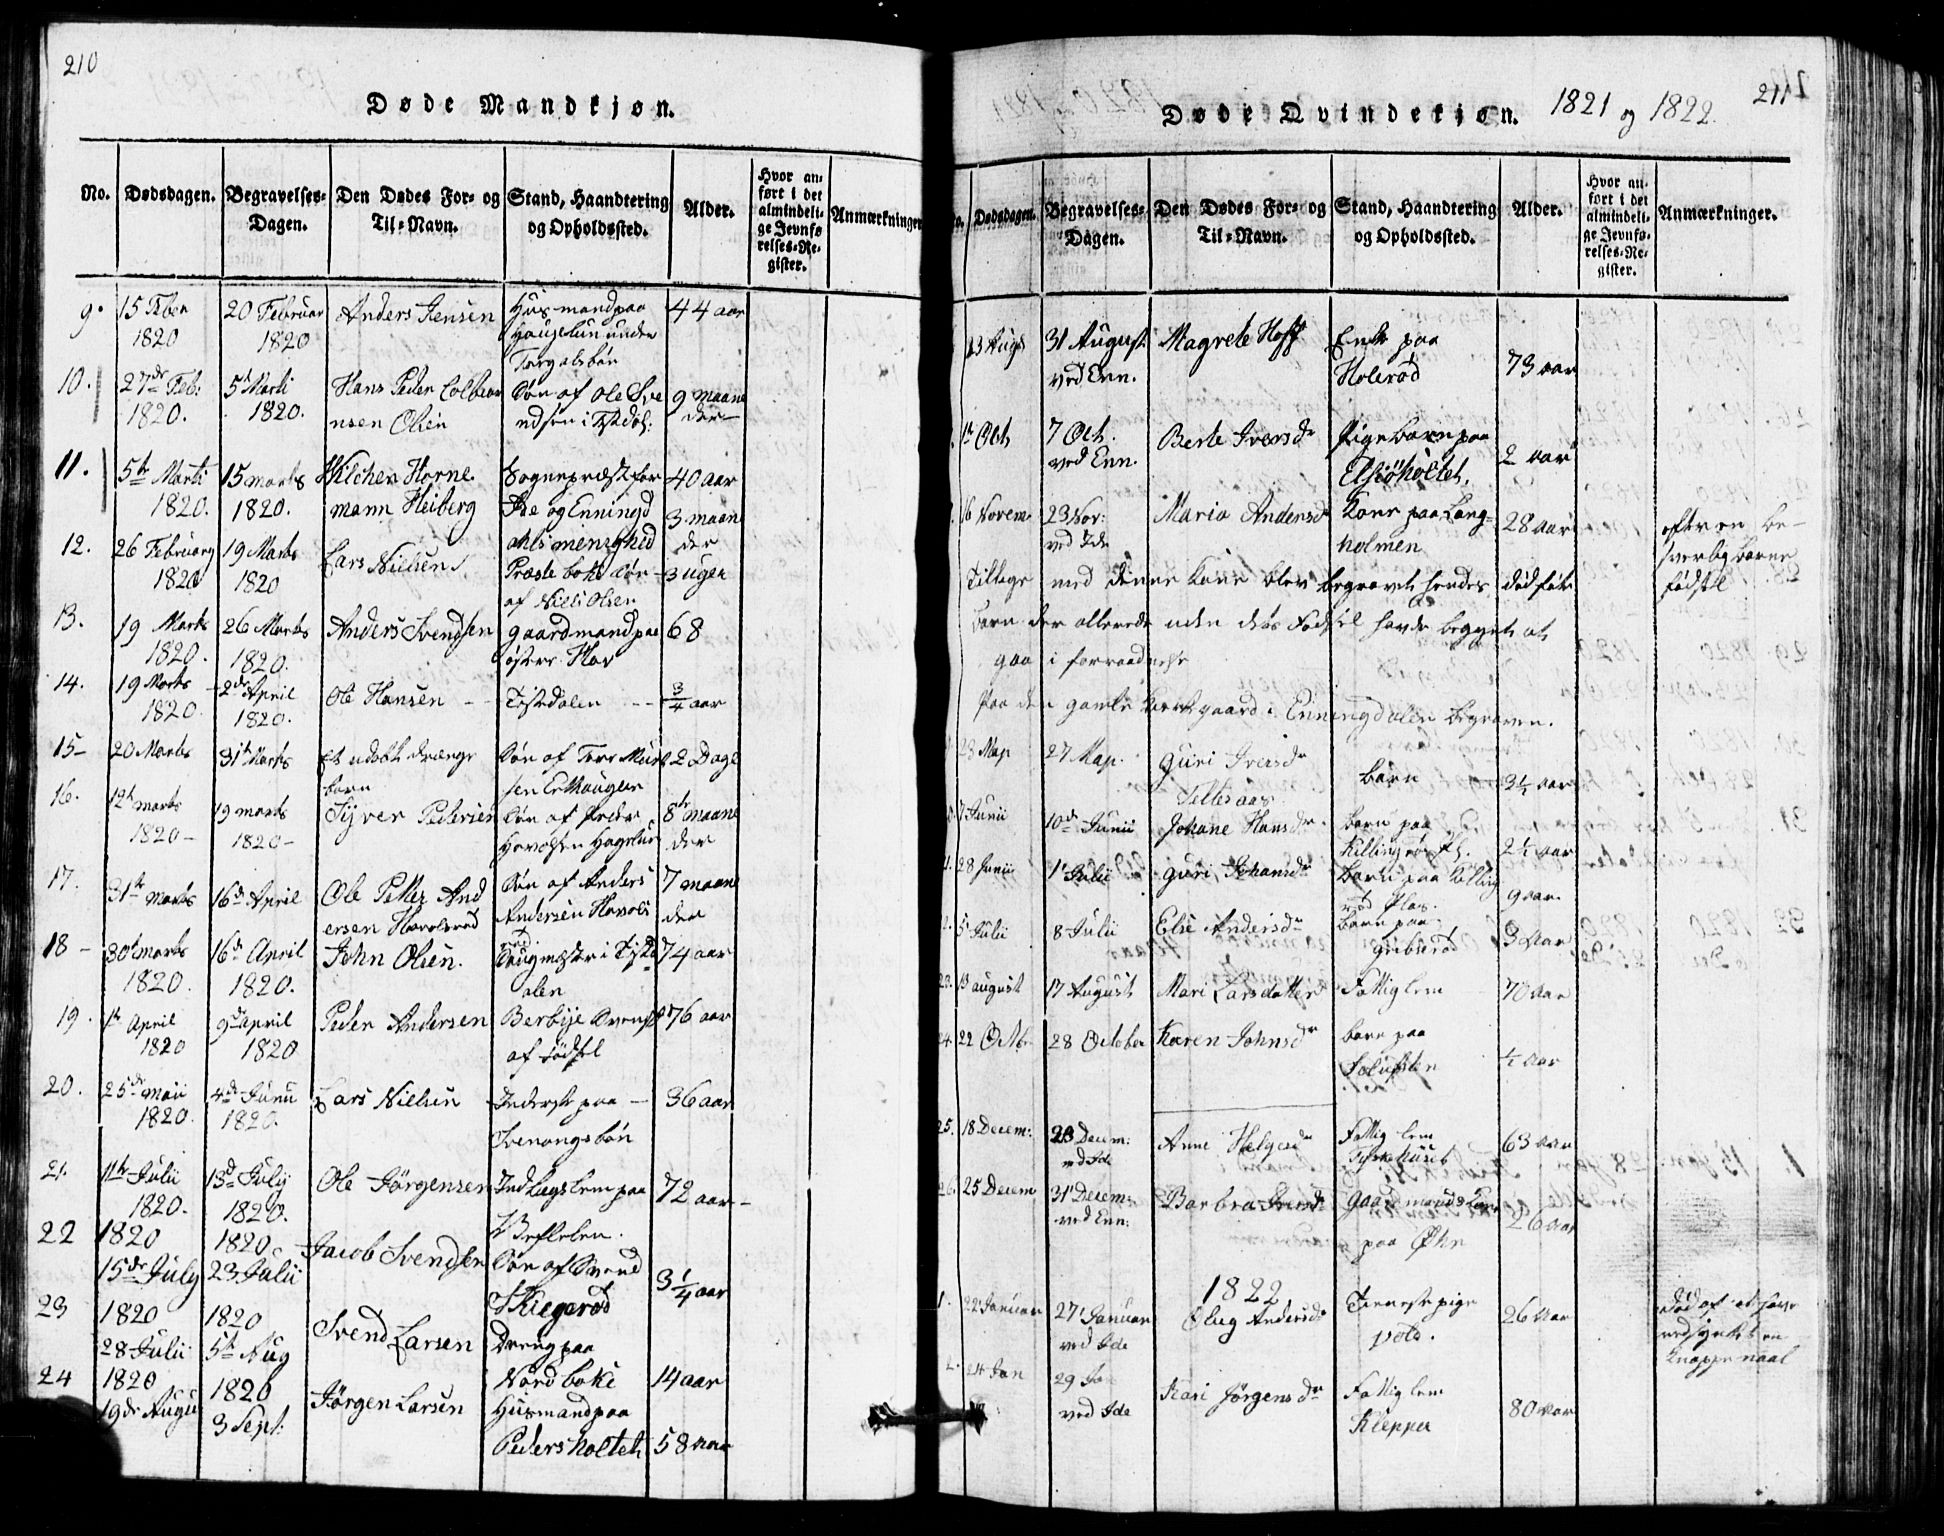 210
Døde Mandkjøn.
No. Dødsdagen. Begravelses-Dagen. Den Dødes For- og Til-Navn. Stand, Haandtering og Opholdssted. Alder. Hvor anført i det almindelige Jevnførelses-Register. Anmærkninger
9. 15 Febr 1820 20 Februar 1820 Anders Jensen Husmand paa under 44 aar
10. 27de Feb: 1820. 5te Marti 1820. Hans Peder Olsen Søn af Ole Svendsen i Tistedal: 9 maaneder
11. 5te Marti 1820. 15 marts 1820. Wilchen Hornemann Heiberg Sognepræst for Ide og Enningdahls menighed 40 aar 3 maaneder
12. 26 February 1820 19 Marts 1820 Lars Nielsen Præstebakke Søn af Niels Olsen 3 uger
13. 19 Marts 1820. 26 Marts 1820. Anders Svendsen gaardmand paa østere Hov 68
14. 19 Marts 1820. 2de April 1820. Ole Hansen Tistedalen 3/4 aar
15 20 Marts 31te Marts Et udøbt drenge barn Søn af 2 Dage
16. 12te marts 1820 19 marts 1820 Syver Pedersen Søn af Peder 8te maaneder
17. 31te Marts 16de April Ole Petter Andersen Søn af Anders Andersen 7 maaneder
18 30te marts 1820. 16de April 1820. John Olsen. i Tistedalen 74 aar
19. 1te April 1820 9de April 1820 Peder Andersen Berbye Svensk af Fødsel 76 aar
20. 25de Maii 1820. 4de Junii 1820. Lars Nielsen Inderste paa 36 aar
21. 11te Julii 1820. 13de July 1820. Ole Jørgensen Indlagslem paa 72 aar
22 1820 15de July 1820 23 Julii Jacob Svendsen Søn af Svend 3 1/4 aar
23 1820 28 Julii 1820 5te Aug Svend Larsen Dreng paa Nordbøke 14 aar
24 1820 19de Augu 1820 3 Sept: Jørgen Larsen Husmand paa Pedersholtet 58 aar
211
Døde Qvindekjøn. 1821 og 1822.
Dødsdagen. Begravelses-Dagen. Den Dødes For- og Til-Navn. Stand, Haandtering og Opholdssted. Alder. Hvor anført i det almindelige Jevnførelses-Register. Anmærkninger.
23 Augs 31 August ved Enn. Magrete Hoff Enke paa Holerød 73 aar
1te Octb 7 Oct. ved Enn. Berte Iversdr Pigebarn paa 2 aar
16 Novem 23 Nov: ved Ide Maria Andersdr Kone paa Langholmen 28 aar efter en besværlig Barne fødsel
Tillige med denne Kone blev begravet hendes dødfødte
Barn der allerede inden dets Fødsel havde begynt at
gaa i forraadnelse
Paa den gamle Kirkegaard i Enningdalen begraven.
23 May 27 May. Guri Iversdr barn 3 1/2 aar
7 Junii 10de Junii Johane Hansdr. barn paa 2 1/2 aar
28 Junii 1te Julii Guri Johansdr Barn paa 9 aar
5 Julii 8 Julii Else Andersdr barn paa 3 aar
23. 13 august 17 August Mari Larsdatter Fattiglem 70 aar
24 22 Octbr 28 October Karen Johnsdr barn paa 1/2 aar
25. 18 Decem: 23 Decem: ved Ide Anne Fattiglem 63 aar
26. 25 Decem 31 Decem: ved Enn: Barbra Iversdr Gaardmands Kone paa 26 aar
1822
1. 22 Januar 27 Januar ved Ide Oleg Andersdr Tienestepige 26 aar Død af at have nedsynket en Knappenaal
2. 24 Jan 29 Jan ved Ide Kari Jørgensdr Fattiglem Klepper 80 aar